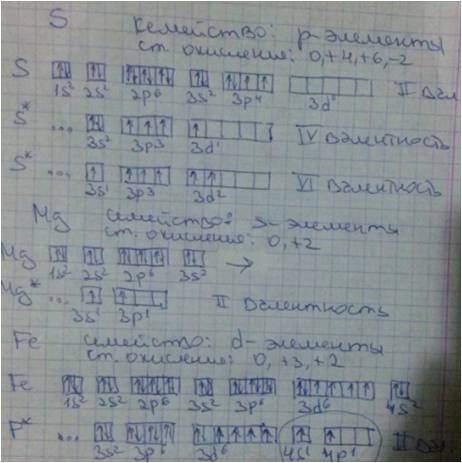 S Семейство: р-элементы
ст. окисления: 0, +4, +6, -2
S
1S² 2S² 2p⁶ 3S² 3p⁴ 3d⁰ II Вал
S* ... IV Валентность
3S² 3p³ 3d¹
S* ... VI Валентность
3S¹ 3p³ 3d²
Mg семейство: s-элементы
ст. окисления: 0, +2
Mg →
1S² 2S² 2p⁶ 3S²
Mg* ... II Валентность
3S¹ 3p¹
Fe семейство: d-элементы
ст. окисления: 0, +3, +2
Fe
1S² 2S² 2p⁶ 3S² 3p⁶ 3d⁶ 4S²
F* ... II Вал
3S² 3p⁶ 3d⁶ 4S¹ 4p¹